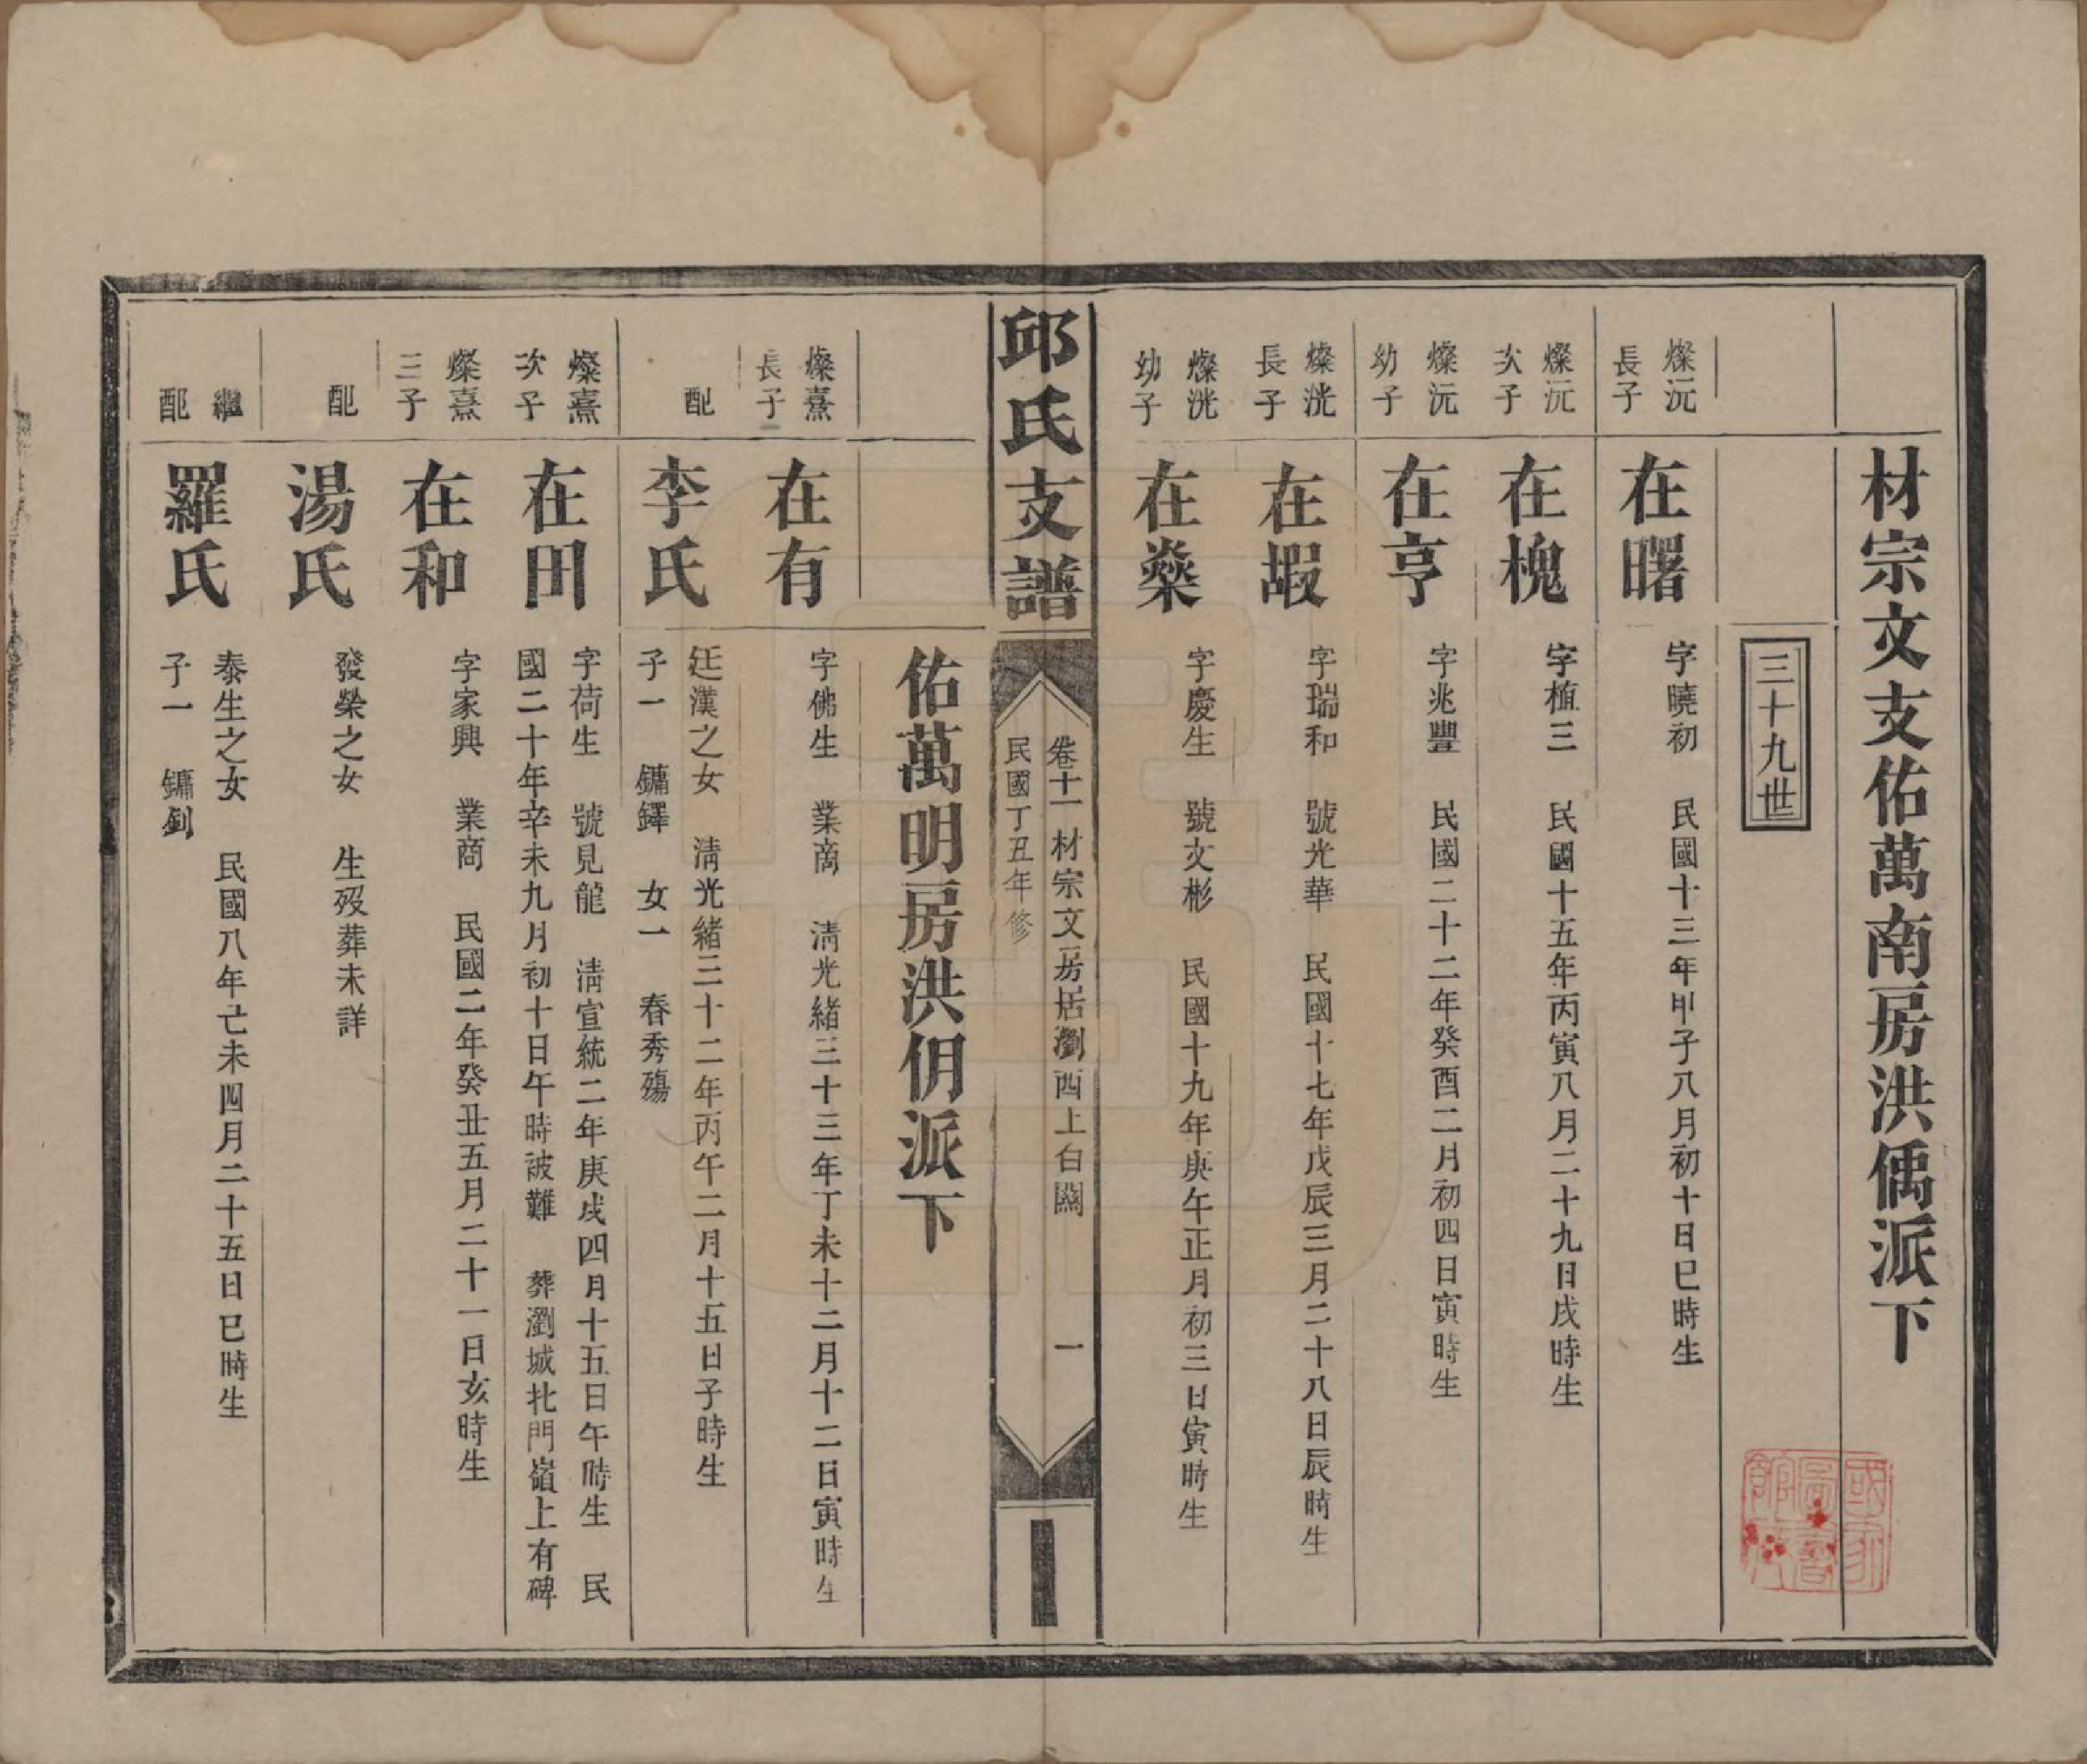 材宗文支佑萬南房洪偊派下
三十九世
燦沅
長子
在曙
字曉初 民國十三年甲子八月初十日巳時生
燦沅
次子
在槐
字植三 民國十五年丙寅八月二十九日戌時生
燦沅
幼子
在亨
字兆豐 民國二十二年癸酉二月初四日寅時生
燦洸
長子
在嘏
字瑞和 號光華 民國十七年戊辰三月二十八日辰時生
燦洸
幼子
在燊
字慶生 號文彬 民國十九年庚午正月初三日寅時生
邱氏支譜
卷十一 材宗文房居瀏西上台關 一
民國丁丑年修
佑萬明房洪仴派下
燦熹
長子
在有
字佛生 業商 清光緒三十三年丁未十二月十二日寅時生
配
李氏
廷漢之女 清光緒三十二年丙午二月十五日子時生
子一 鏞鐸 女一 春秀殤
燦熹
次子
在田
字荷生 號見龍 清宣統二年庚戌四月十五日午時生 民
國二十年辛未九月初十日午時被難 葬瀏城北門嶺上有碑
燦熹
三子
在和
字家興 業商 民國二年癸丑五月二十一日亥時生
配
湯氏
發榮之女 生歿葬未詳
繼
配
羅氏
泰生之女 民國八年己未四月二十五日巳時生
子一 鏞釗